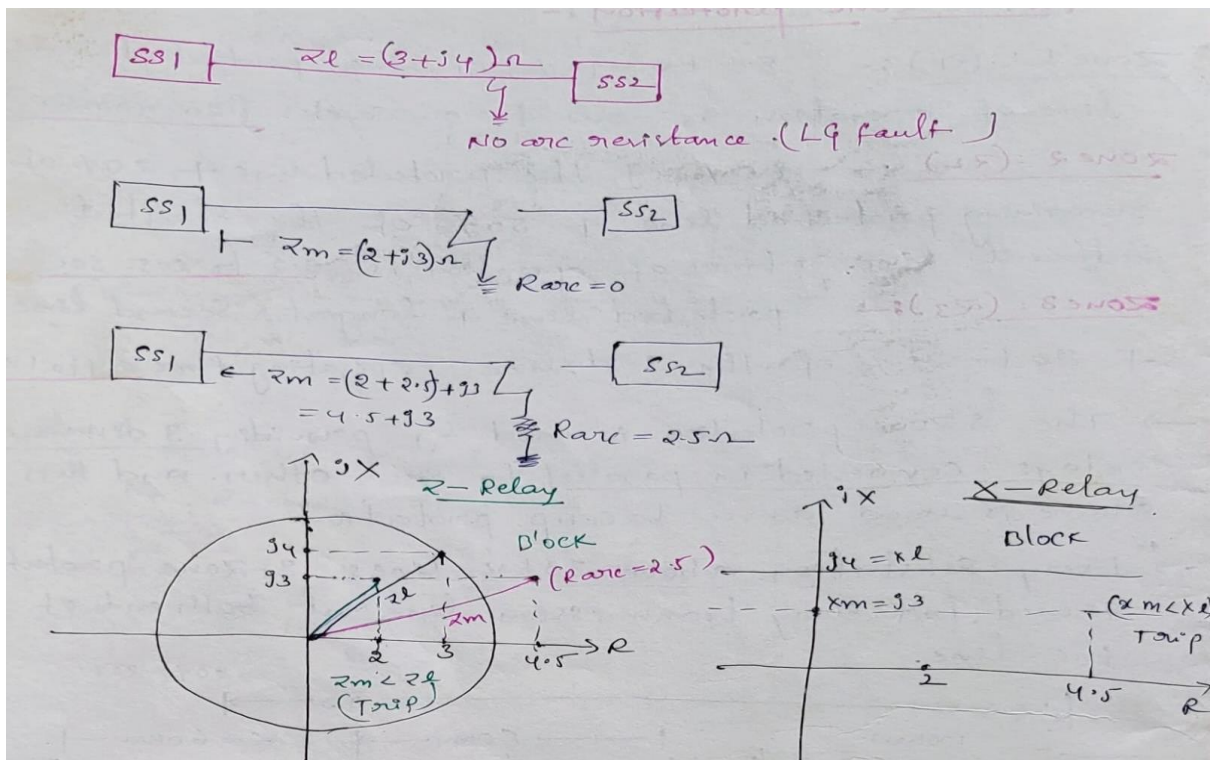 SS1
Zl = (3+j4)Ω
SS2
No arc resistance. (LG fault)
SS1
SS2
Zm = (2+j3)Ω
Rarc = 0
SS1
SS2
Zm = (2+2.5)+j3
= 4.5+j3
Rarc = 2.5Ω
jX
Z-Relay
Block
j4
j3
(Rarc=2.5)
Zl
Zm
2
3
4.5
R
Zm < Zl
(Trip)
jX
X-Relay
Block
j4 = Xl
Xm = j3
(Xm<Xl)
Trip
2
4.5
R